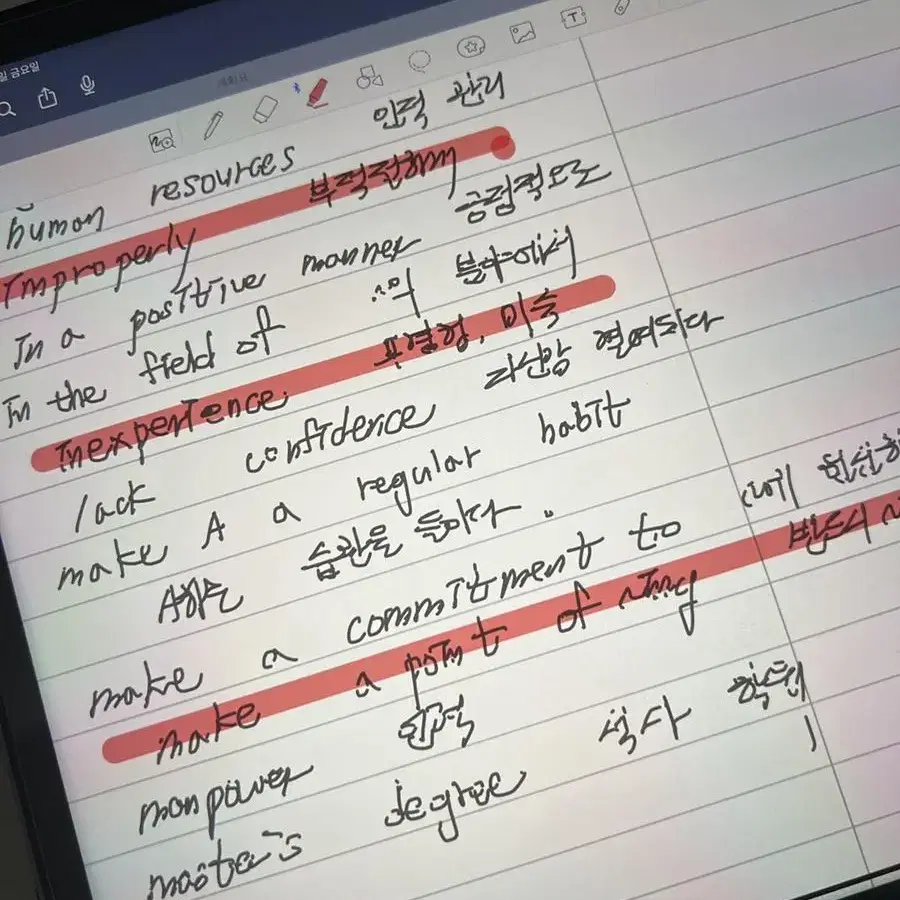 일 금요일
계획표
T
human resources 인적 관리
improperly 부적절하게
In a positive manner 긍정적으로
In the field of ~의 분야에서
Inexperience 무경험, 미숙
lack confidence 자신감 결여되다
make A a regular habit
A하는 습관을 들이다.
make a commitment to ~에 헌신하
make a point of ~ing 반드시 ~
manpower 인력
master's degree 석사 학위